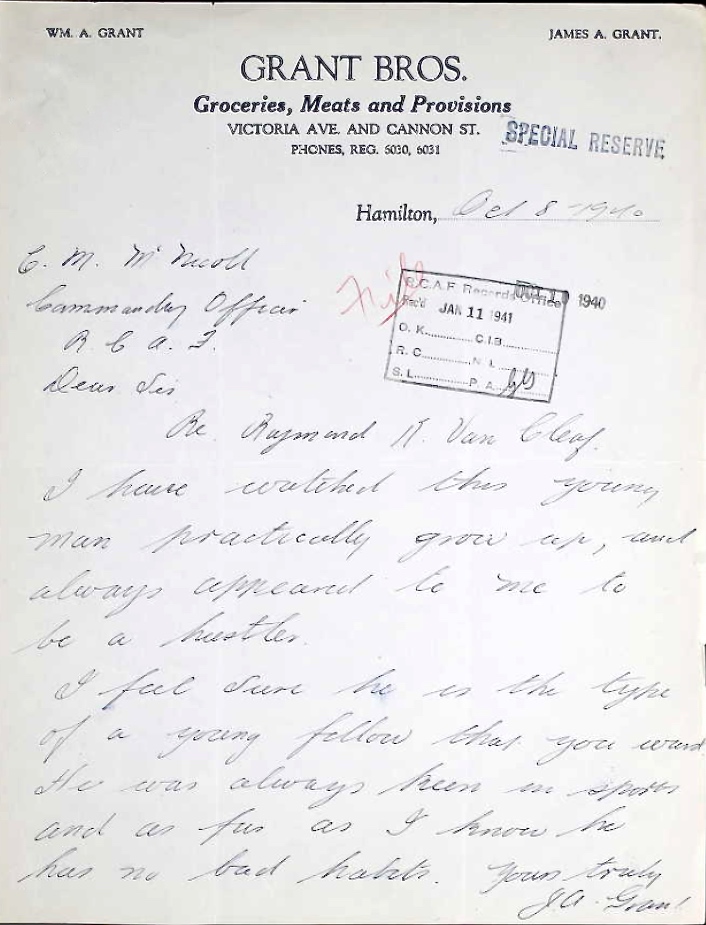 WM. A. GRANT
JAMES A. GRANT.
GRANT BROS.
Groceries, Meats and Provisions
VICTORIA AVE. AND CANNON ST.
PHONES, REG. 5030, 6031
SPECIAL RESERVE
Hamilton, Oct 8 - 1940
C. M. McNicoll
Commanding Officer
R.C.A.F. Records Office
OCT 10 1940
Rec'd JAN 11 1941
O. K. C.I.B.
R. C. N. L.
S. L. P. A.
R C A F
Dear Sir
Re. Raymond K. Van Cleaf.
I have watched this young
man practically grow up, and
always appeared to me to
be a hustler.
I feel sure he is the type
of a young fellow that you want
He was always keen in sports
and as far as I know he
has no bad habits. Yours truly
J.A. Grant